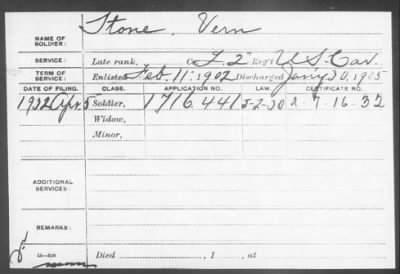 NAME OF SOLDIER: Stone, Vern
SERVICE: Late rank, Co. L. 2" Reg't U.S. Cav.
TERM OF SERVICE: Enlisted Feb. 11, 1902 Discharged Jan'y 30, 1905
DATE OF FILING. CLASS. APPLICATION NO. LAW. CERTIFICATE NO.
1932 Apr. 5 Soldier, 1716441 5-2-30 2-7-16-32
Widow,
Minor,
ADDITIONAL SERVICES:
REMARKS:
Died , 1 , at